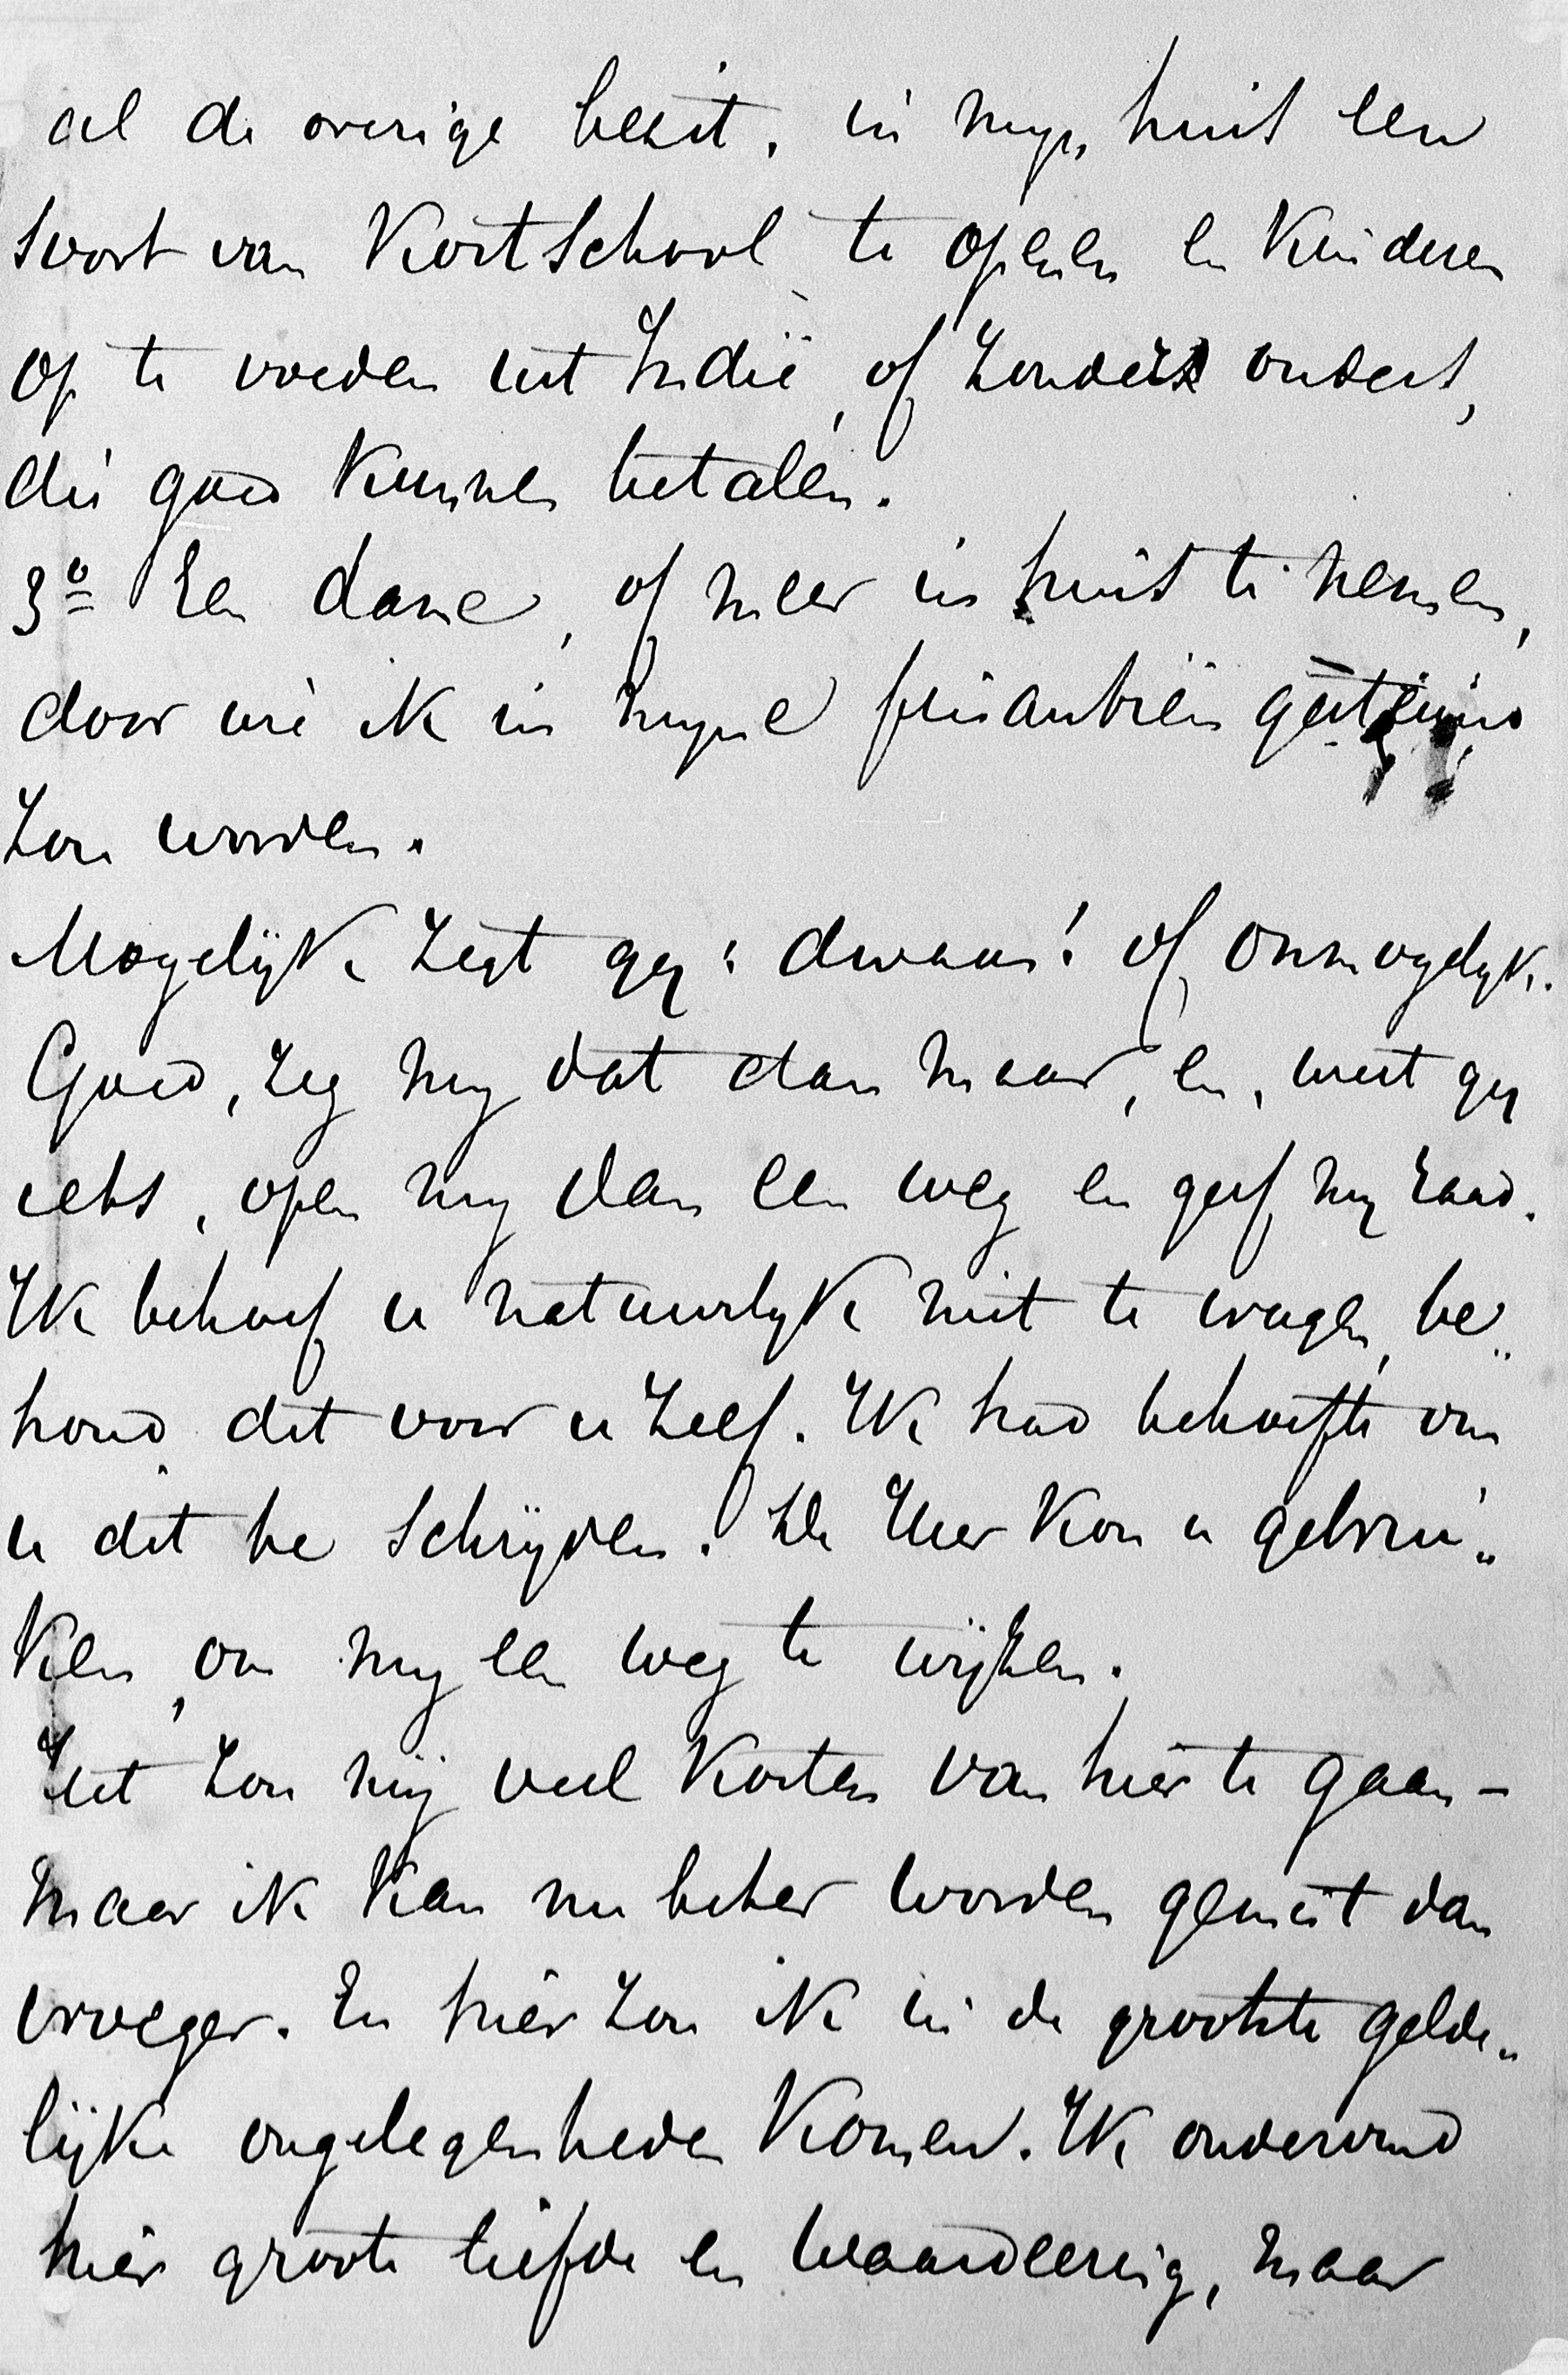 al de overige bezit, in mijn huis een
soort van Kostschool te openen en Kinderen
op te voeden uit Indië, of zonder ouders,
die goed Kunnen betalen.
3º Een dame, of meer in huis te nemen,
door wie ik in mijne finantiën gesteund
zou worden.
Mogelijk zegt gij: dwaas! of onmogelijk.
Goed, zeg mij dat dan maar, en, weet gij
iets, open mij dan een weg en geef mij raad.
Ik behoef u natuurlijk niet te vragen, be„
houd dit voor u zelf. Ik had behoefte om
u dit te schrijven. De Heer Kon u gebrui„
Ken, om mij een weg te wijzen.
Het zou mij veel Kosten van hier te gaan –
maar ik Kan nu beter worden gemist dan
vroeger. En hier zou ik in de grootste gelde„
lijke ongelegenheden Komen. Ik ondervind
hier groote liefde en waardeering, maar